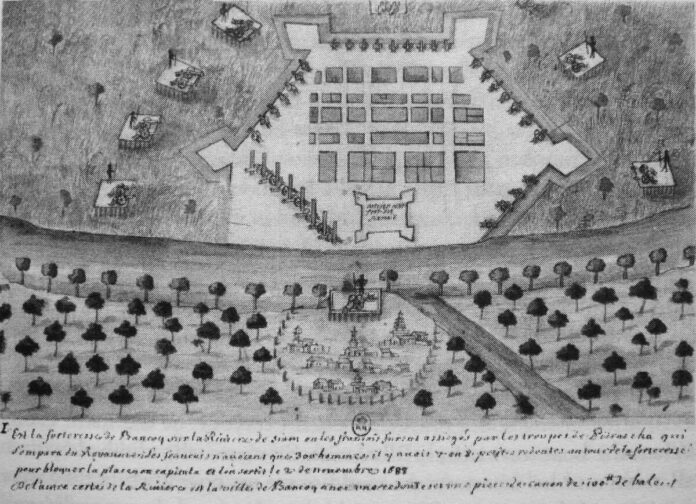 I
Est la forteresse de Bancoq sur la Riviere de siam ou les francais furent assiegés par les troupes de Pitracha qui
s'empara du Royaume les francais n'avoient que 200 hommes il y avoit 7 ou 8 petites redoutes autour de la forteresse
pour bloquer la place on capitula et l'on sortit le 2 de novembre 1688
De l'autre costé de la Riviere est la ville de Bancoq avec une redoute et une piece de canon de 100lt de bale